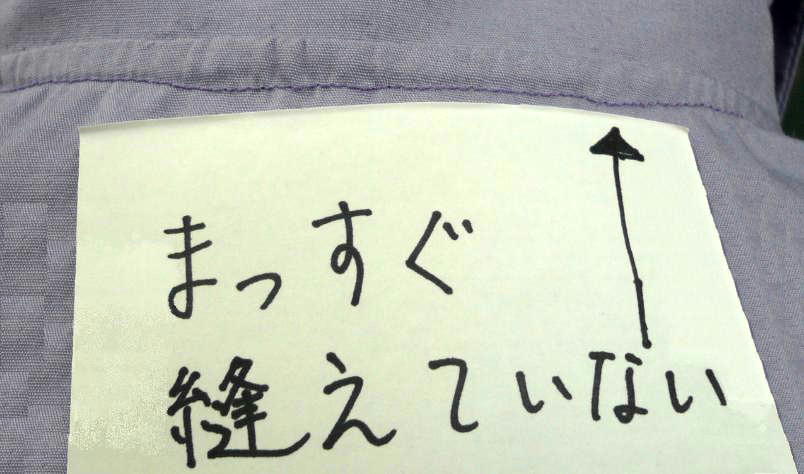 まっすぐ
縫えていない